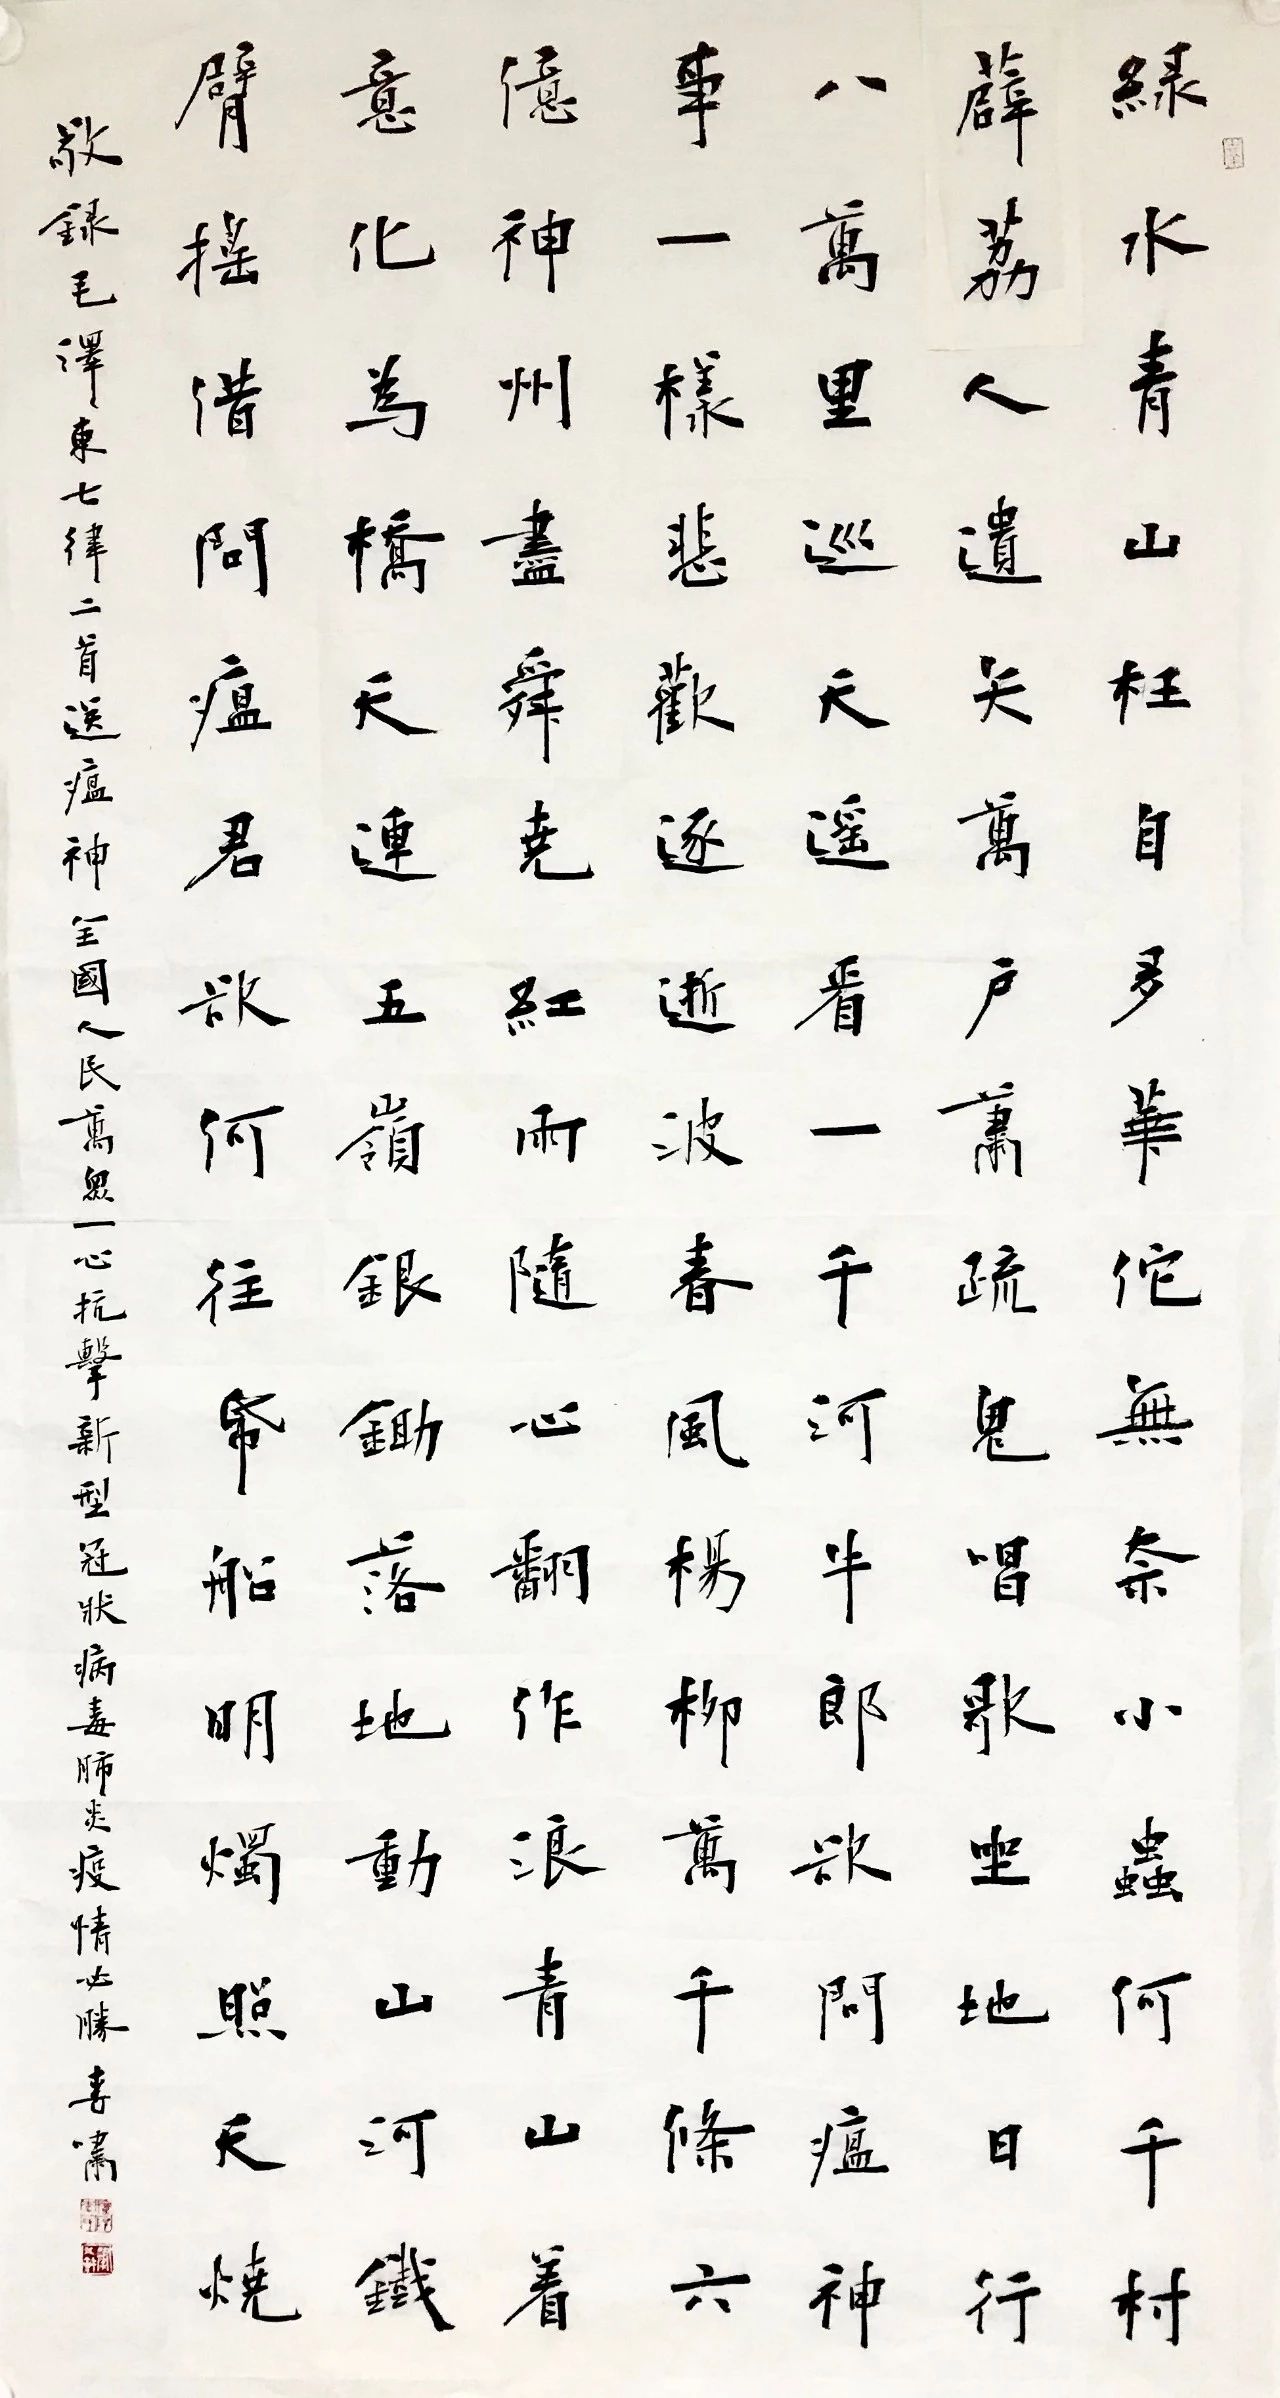 緑水青山枉自多華佗無奈小蟲何千村
薜荔人遺矢萬户蕭疏鬼唱歌坐地日行
八萬里巡天遥看一千河牛郎欲問瘟神
事一樣悲歡逐逝波春風楊柳萬千條六
億神州盡舜堯紅雨隨心翻作浪青山着
意化為橋天連五嶺銀鋤落地動山河鐵
臂摇借問瘟君欲何往帋船明燭照天燒
敬録毛澤東七律二首送瘟神全國人民萬眾一心抗擊新型冠狀病毒肺炎疫情必勝春嘯